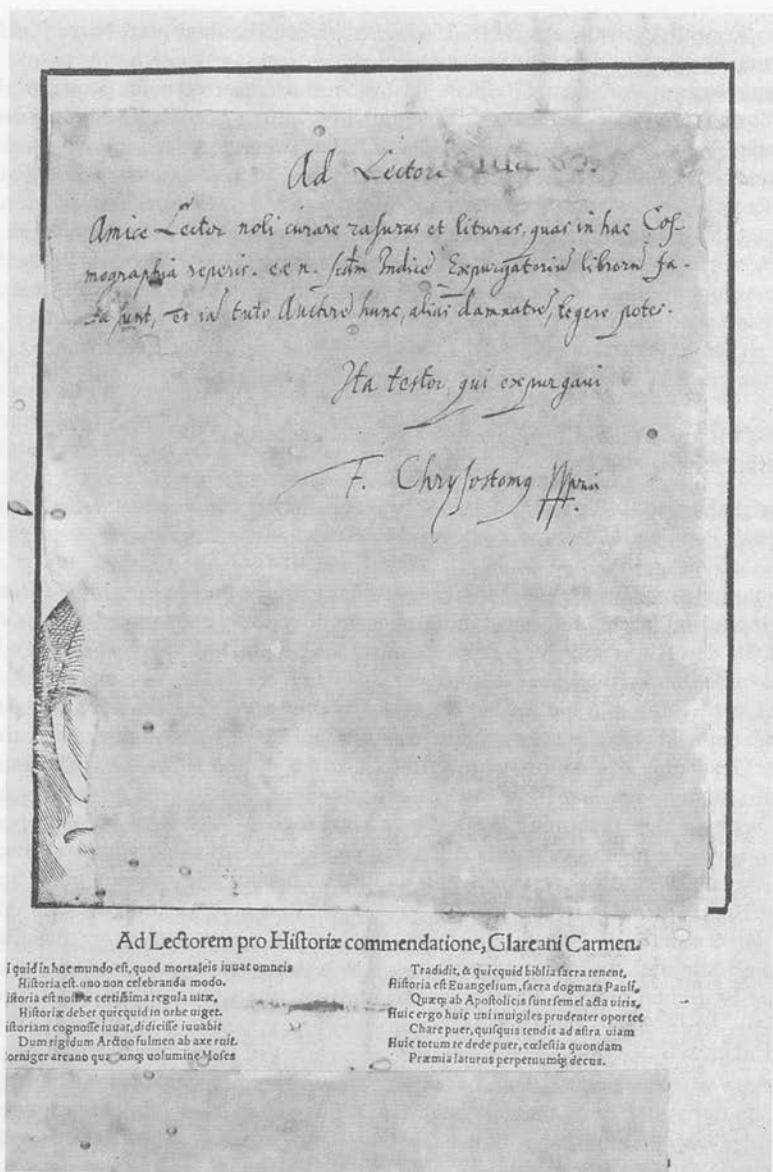 Ad Lectorē
Amice Lector noli curare rasuras et lituras, quas in hac Cos-
mographia reperis. eæ n. scdm Indicē Expurgatoriū librorū fa-
cta sunt, et iā tuto Auctorē hunc, aliàs damnatū, legere potes.
Ita testor qui expurgaui
F. Chrysostomus
Ad Lectorem pro Historiæ commendatione, Glareani Carmen.
I quid in hoc mundo est, quod mortaleis iuuat omneis
Historia est, uno non celebranda modo.
istoria est nostræ certissima regula uitæ,
Historiæ debet quicquid in orbe uiget.
istoriam cognosse iuuat, didicisse iuuabit
Dum rigidum Arctoo fulmen ab axe ruit.
orniger arcano quæcunq; uolumine Moses
Tradidit, & quicquid biblia sacra tenent,
Historia est Euangelium, sacra dogmata Pauli,
Quæq; ab Apostolicis sunt semel acta uiris,
Huic ergo huic uni inuigiles prudenter oportet
Chare puer, quisquis tendis ad astra uiam
Huic totum te dede puer, cœlestia quondam
Præmia laturus perpetuumq; decus.